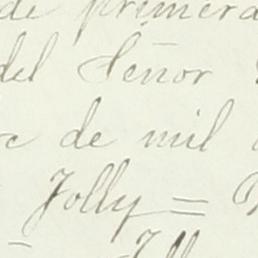 de primera
del Señor
de mil
Jolly =